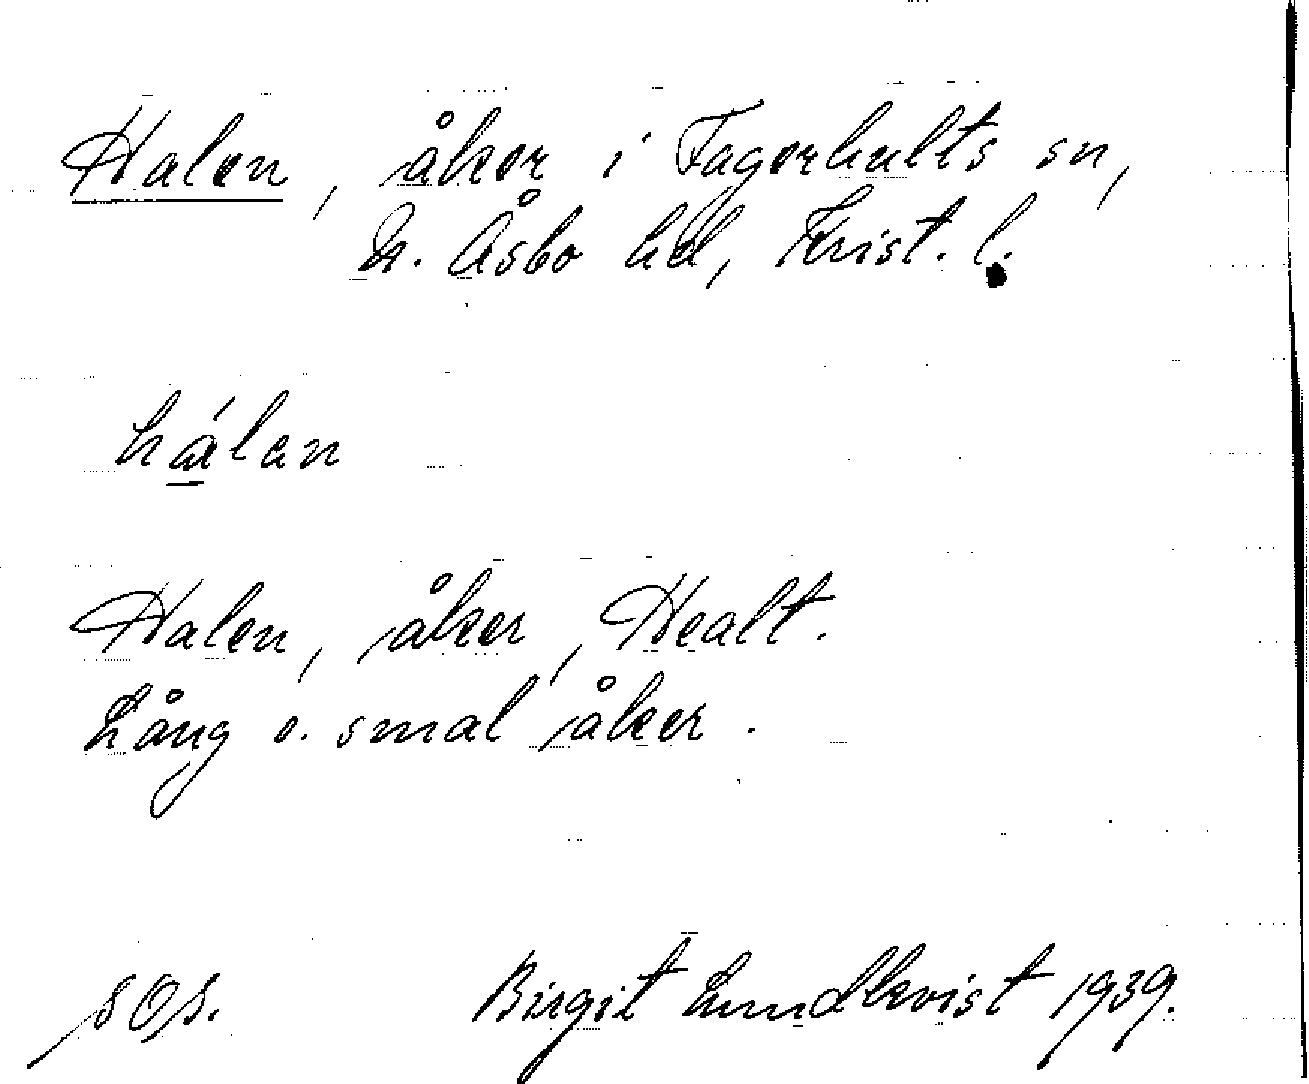 Halen, åker i Fagerhults sn,
N. Åsbo hd, Krist. l.
hálan
Halen, åker, Healt.
Lång o. smal åker.
Birgit Lundkvist 1939.